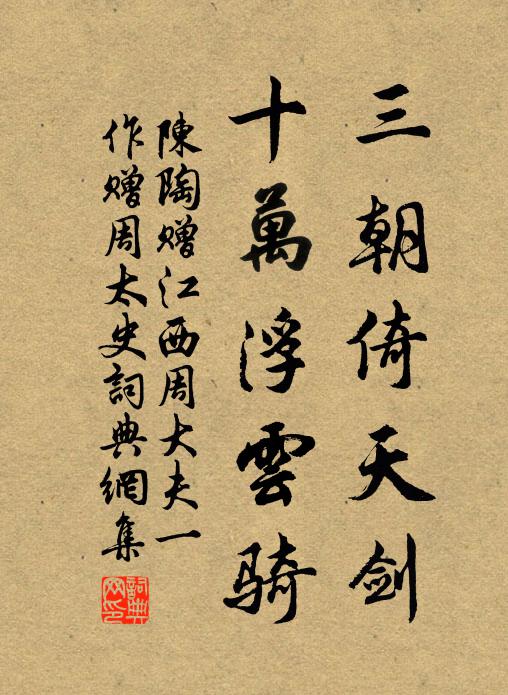 三朝倚天劍
十萬浮雲骑
陳陶贈江西周大夫一
作贈周太史詞典網集
詞典网印